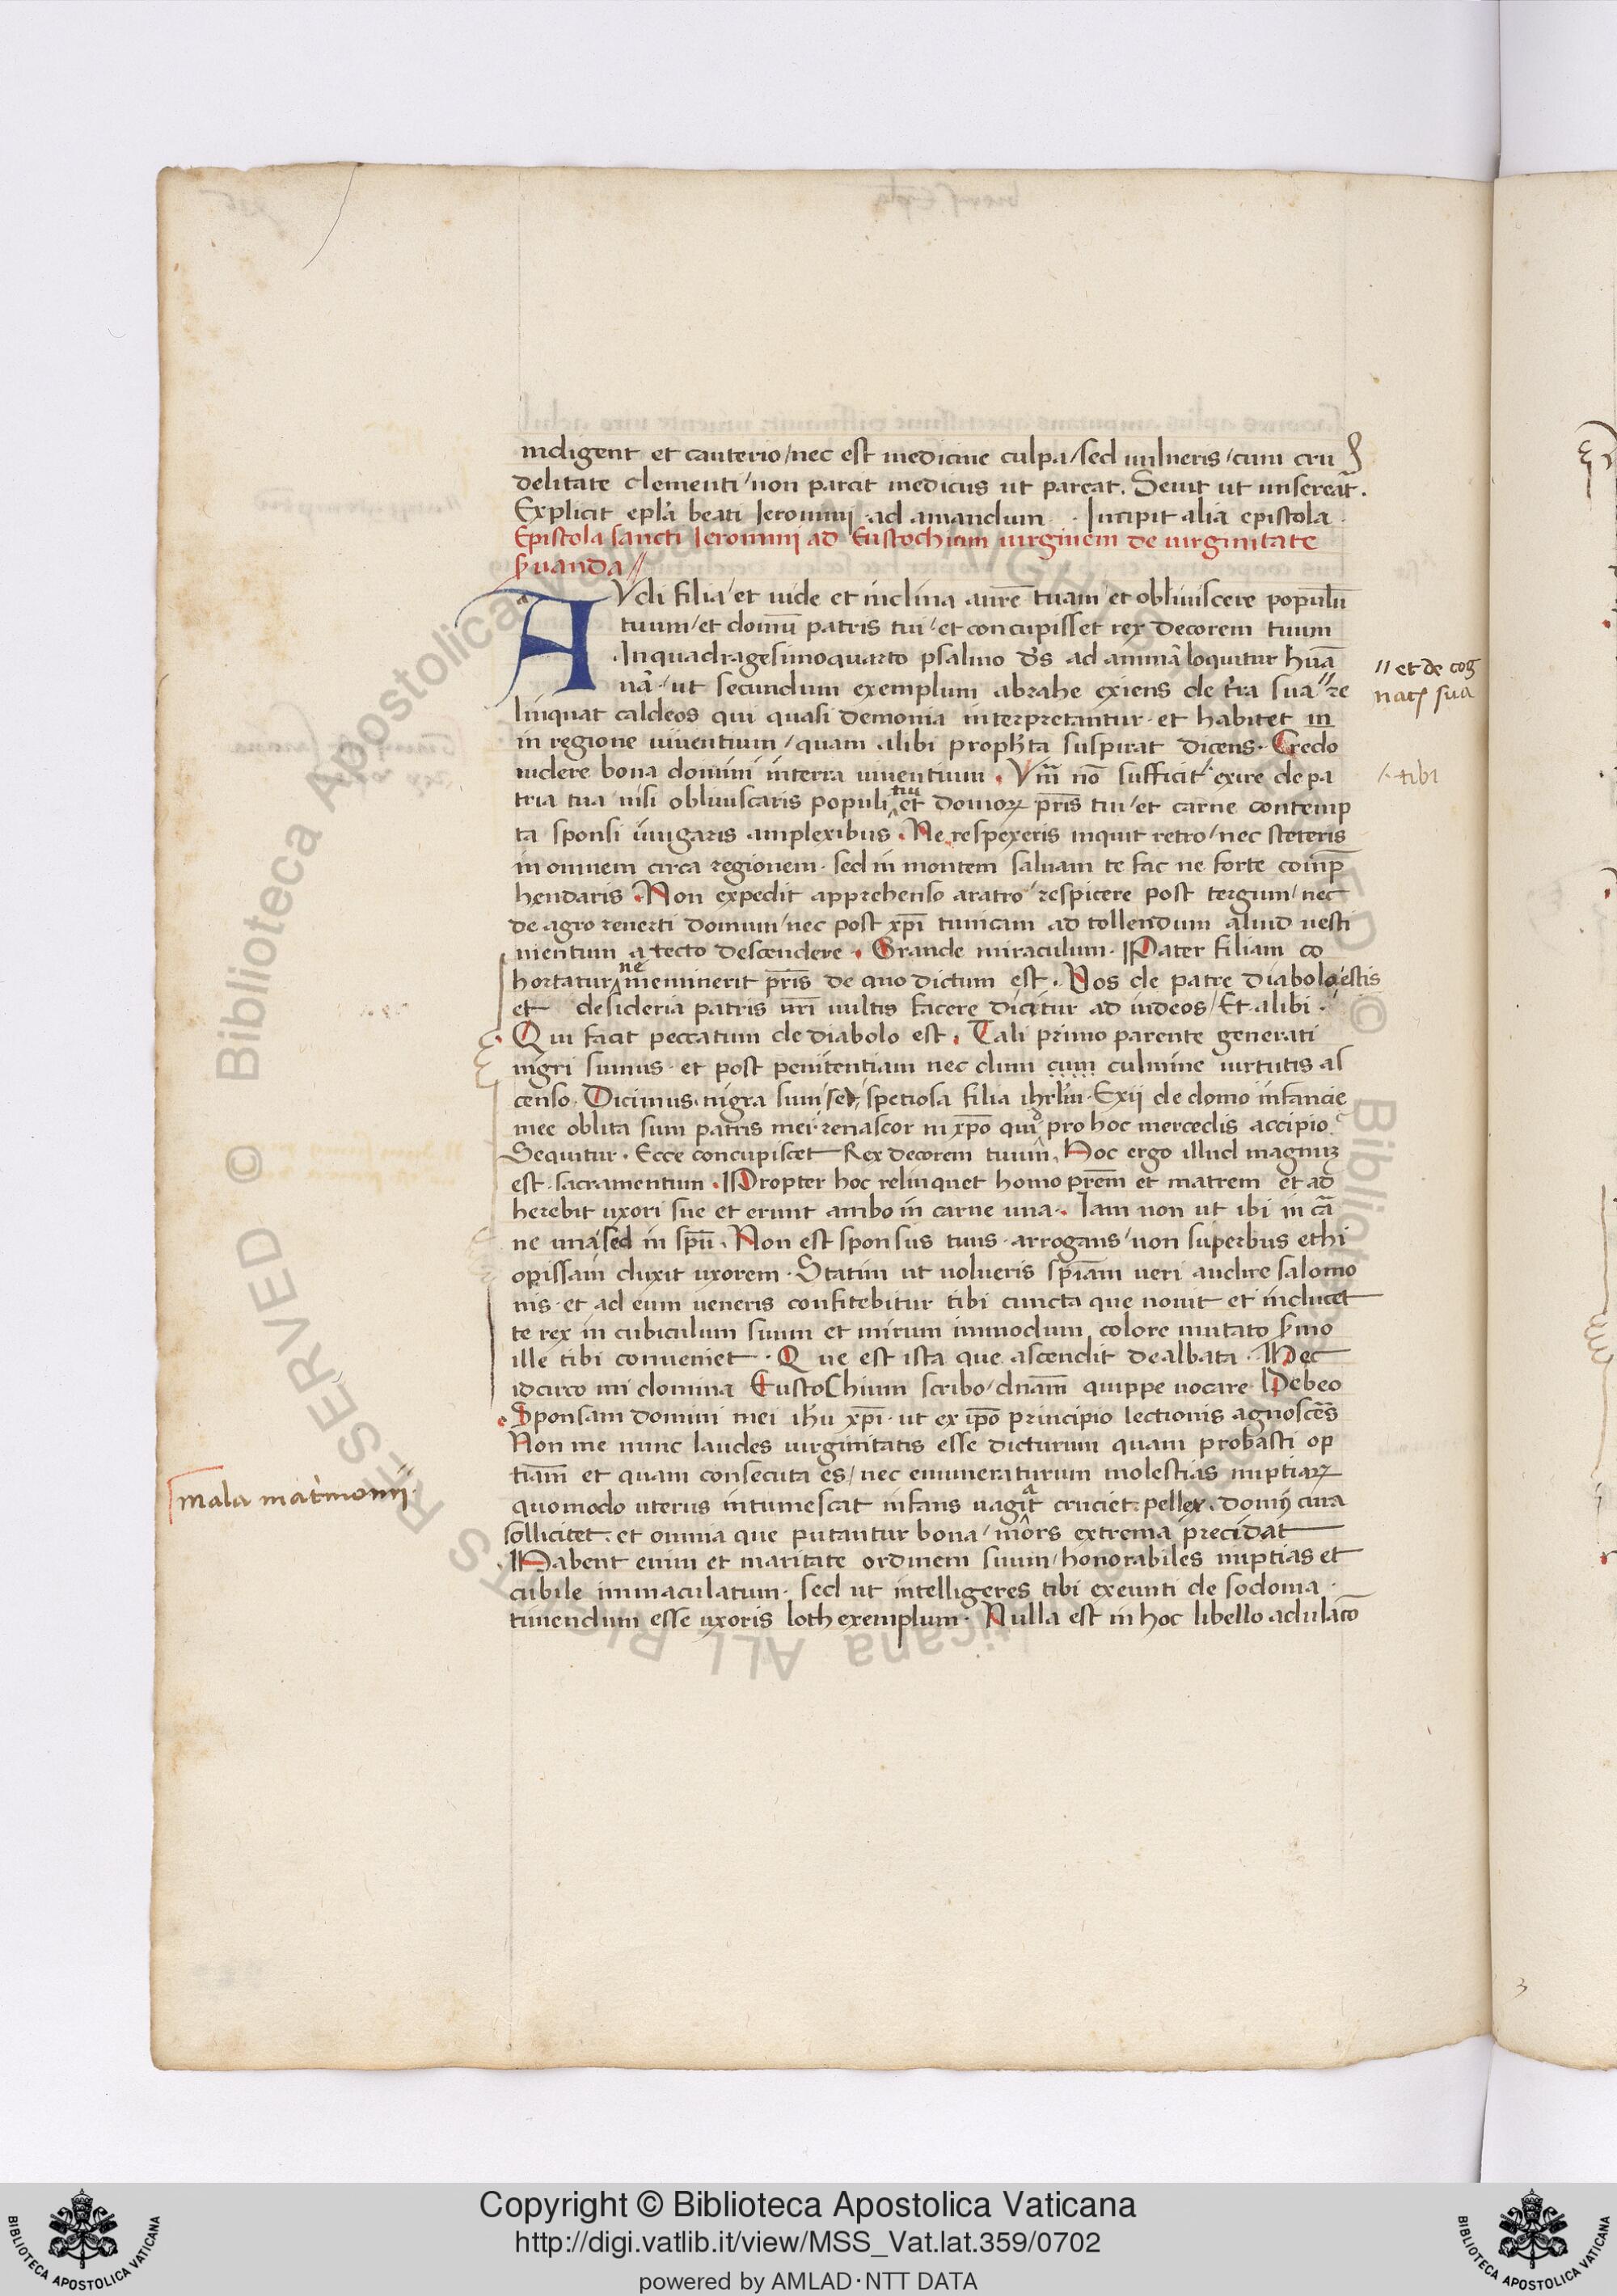 indigent et cauterio / nec est medicine culpa / sed uulneris / cum cru
delitate clementi / non parcit medicus ut pareat. Seuit ut misereat̄.
Explicit epl̄a beati Ieronimi · ad amandum · Incipit alia epistola ·
Epistola sancti Ieronimi ad Eustochium uirginem de uirginitate
ẜuanda //
AUdi filia / et uide et inclina aurē tuam / et obliuiscere popul̄ū
tuum / et domū patris tui / et concupisset rex decorem tuum
.In quadragesimoquarto psalmo d̄s ad animā loquitur hūa
nā · ut secundum exemplum abrahe exiens de t̄ra sua // re
// et de cog
sua
linquat caldeos qui quasi demonia interpretantur · et habitet in
in regione uiuentium / quam alibi proph̄ta suspirat dicens · Credo
uidere bona domini in terra uiuentium . Vm̄ nō sufficit /· exire de pa
/· tibi
tria tua nisi obliuiscaris populi tui et domoꝝ pr̄is tui / et carne contemp
ta sponsi iungaris amplexibus . Ne respexeris inquit retro / nec steteris
in omnem circa regionem · sed in montem saluam te fac ne forte comp̄
hendaris . Non expedit apprehenso aratro / respicere post tergum / nec
de agro reuerti domum / nec post xp̄i tunicam ad tollendum aliud uesti
mentum a tecto descendere . Grande miraculum . Pater filiam co
hortatur ne meminerit pr̄is de quo dictum est . Vos de patre diabolo estis
et desideria patris ur̄i uultis facere dicitur ad iudeos / Et alibi ·
Qui facit peccatum de diabolo est . Tali primo parente generati
nigri sumus · et post penitentiam nec dum cum culmine uirtutis as
censo . Dicimus nigra sum sed spetiosa filia ihrl̄m · Exii de domo infancie
mee oblita sum patris mei · renascor in xp̄o quid pro hoc mercedis accipio
Sequitur · Ecce concupiscet Rex decorem tuum . Hoc ergo illud magnuꝫ
est sacramentum . Propter hoc relinquet homo pr̄em et matrem et ad
herebit uxori sue et erunt ambo in carne una . Iam non ut ibi in cā
ne una / sed in spū . Non est sponsus tuus · arrogans / non superbus ethi
opissam duxit uxorem · Statim ut uolueris sp̄iam ueri audire salomo
nis · et ad eum ueneris confitebitur tibi cuncta que nouit et inducet
te rex in cubiculum suum et mirum inmodum colore mutato ẜmo
ille tibi conueniet · Que est ista que ascendit dealbata . Hec
idcirco mi domina Eustochium scribo / dnām quippe uocare Debeo
Sponsam domini mei ih̄u xp̄i · ut ex ip̄o principio lectionis agnoscēs
Non me nunc laudes uirginitatis esse dicturum quam probasti op
tiam̄ et quam consecuta es / nec enumeraturum molestias nuptiaꝝ
mala mat̄monij ·
quomodo uterus intumescat infans uagiat cruciet pellex · domꝰ cura
sollicitet · et omnia que putantur bona / mors extrema precidat
Habent enim et maritate ordinem suum / honorabiles nuptias et
cubile immaculatum · sed ut intelligeres tibi exeunti de sodoma ·
timendum esse uxoris loth exemplum · Nulla est in hoc libello adulacō
Copyright © Biblioteca Apostolica Vaticana
http://digi.vatlib.it/view/MSS_Vat.lat.359/0702
powered by AMLAD·NTT DATA
BIBLIOTECA APOSTOLICA VATICANA
BIBLIOTECA APOSTOLICA VATICANA